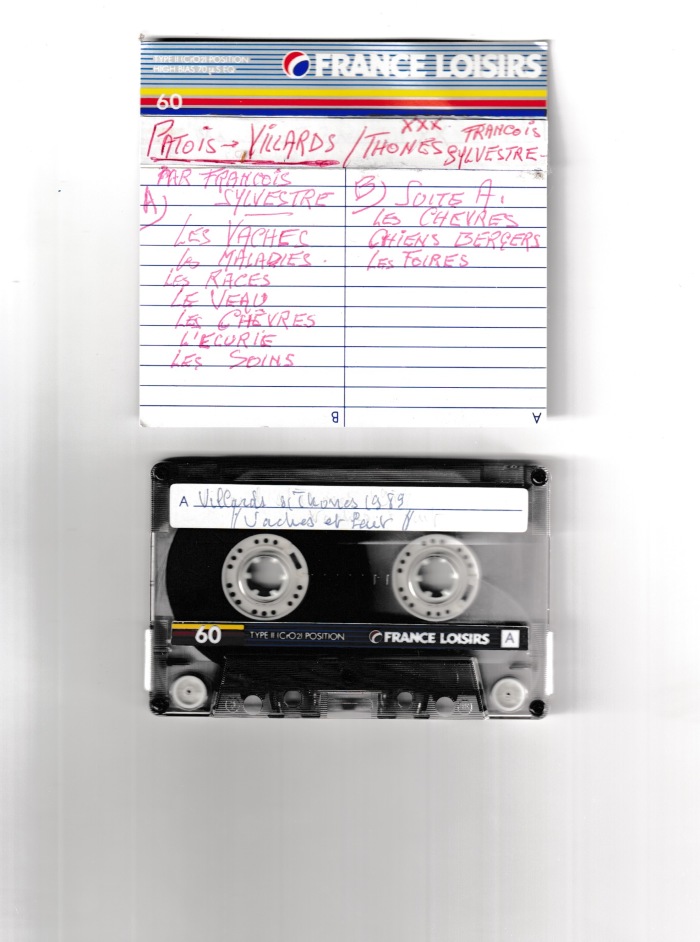 TYPE II (CrO2) POSITION
HIGH BIAS 70 µS EQ.
FRANCE LOISIRS
60
PATOIS → VILLARDS / THONES XXX FRANCOIS
SYLVESTRE -
PAR FRANCOIS
SYLVESTRE
A)
LES VACHES
LES MALADIES
LES RACES
LE VEAU
LES CHÈVRES
L'ECURIE
LES SOINS
B) SUITE A.
LES CHEVRES
CHIENS BERGERS
LES FOIRES
B
A
A Villards s/Thones 1989
"Vaches et Lait"
60 TYPE II (CrO2) POSITION FRANCE LOISIRS A